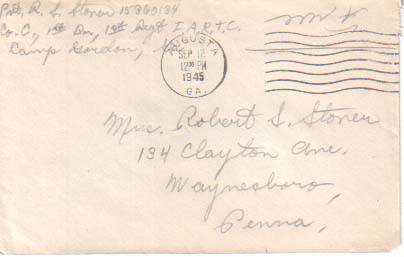 Pvt. R. S. Stoner 15360139
Co. C., 1st Bn, 1st Regt I.A.R.T.C.
Camp Gordon,
AUGUSTA
SEP 12
12 PM
1945
GA.
Mrs. Robert S. Stoner
134 Clayton Ave.
Waynesboro,
Penna,